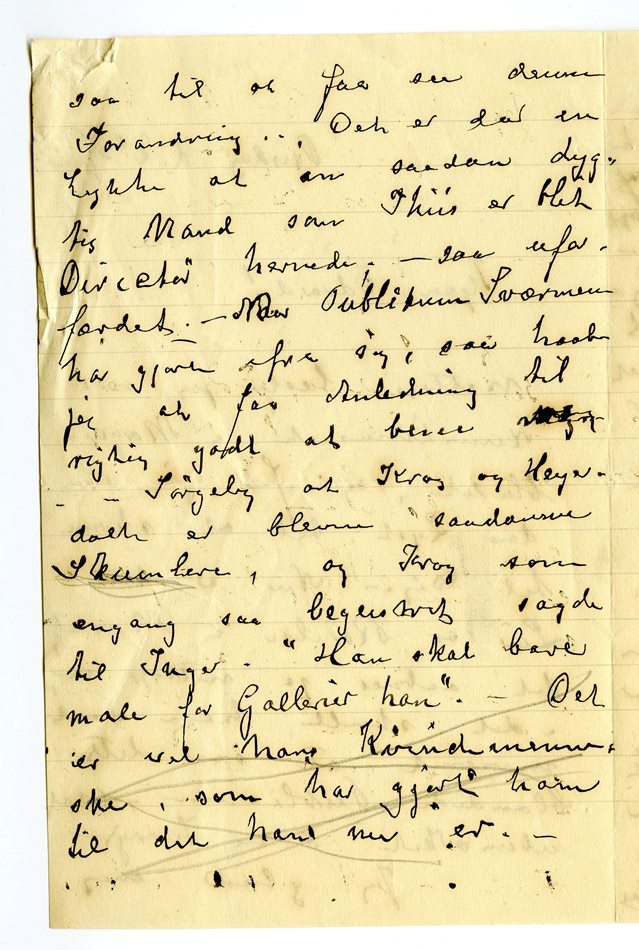 saa til at faa see denne
Forandring.. Det er dar en
Lykke at en saadan dyg-
tig Mand som Thiis er blet
Director hernede; – saa ufor-
færdet. – Naar Publikum Sværmen
har gjort fra sig, saa haaber
jeg at faa Anledning til
rigtig godt at bese
– – Sørgelig at Krog og Heyer-
dahl er blevne saadanne
Skumlere, og Krog som
engang saa begeistret sagde
til Inger. "Han skal bare
male for Gallerier han". – Det
er vel hans Kvindemenne-
ske, som har gjort ham
til det han nu er. –